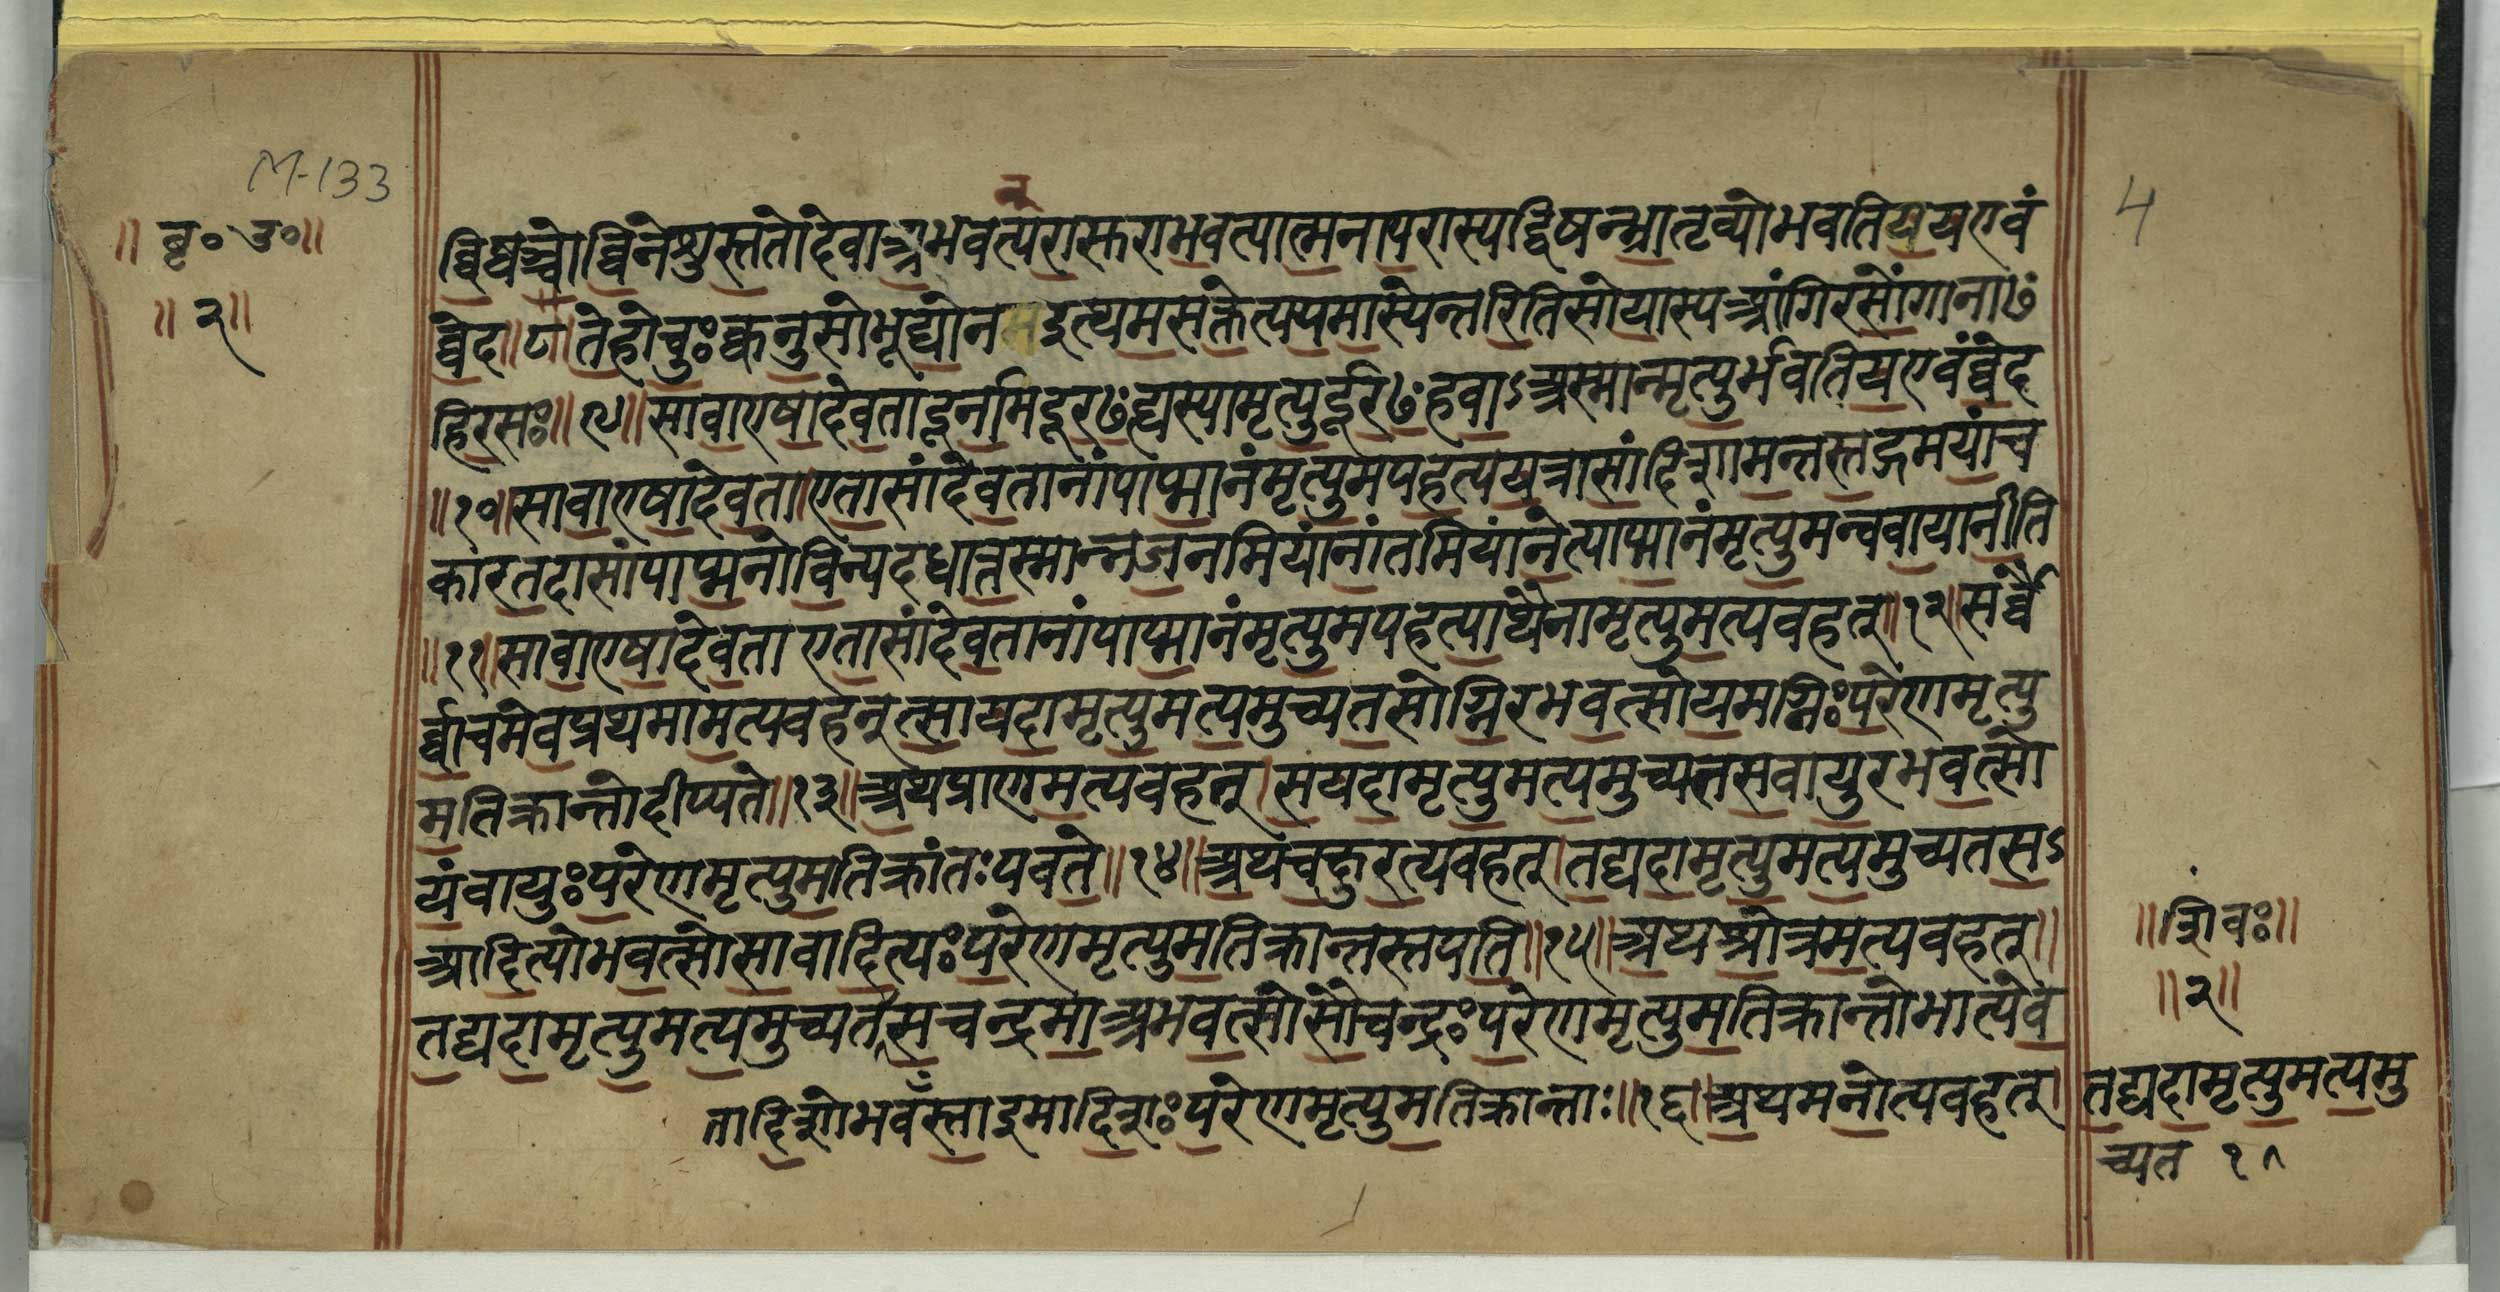 M-133
॥ बृ॰ उ॰॥
॥ २॥
4
न्
व्विष्वञ्चोव्विनेशुस्ततोदेवाअभवत्परास्तराभवत्यात्मनापरास्यद्विषन्भ्रातृव्योभवतिययएवं
व्वेद॥८॥तेहोचुःक्वनुसोभूद्योनइत्थमसक्तेत्ययमास्येन्तरितिसोयास्यआंगिरसोंगानाᳪ
हिरसः॥९॥सावाएषादेवतादूर्नामदूरᳪह्यस्यामृत्युर्दूरᳪहवाऽअस्मान्मृत्युर्भवतियएवंव्वेद
॥१०॥सावाएषादेवताएतासांदेवतानांपाप्मानंमृत्युमपहत्ययत्रासांदिशामन्तस्तद्गमयांच
कारतदासांपाप्मनोविन्यदधात्तस्मान्नजनमियांनांतमियांनेत्पाप्मानंमृत्युमन्ववायानीति
॥११॥सावाएषादेवता एतासांदेवतानांपाप्मानंमृत्युमपहत्याथैनामृत्युमत्यवहत्॥१२॥सर्व्वै
र्व्वाचमेवप्रथमामत्यवहत्सायदामृत्युमत्यमुच्यतसोग्निरभवत्सोयमग्निःपरेणमृत्यु
मतिक्रान्तोदीप्यते॥१३॥अथप्राणमत्यवहत्।सयदामृत्युमत्यमुच्यतसवायुरभवत्सो
यंवायुःपरेणमृत्युमतिक्रांतःपवते॥१४॥अथचक्षुरत्यवहत्।तद्यदामृत्युमत्यमुच्यतसऽ
आदित्योभवत्सोसावादित्यःपरेणमृत्युमतिक्रान्तस्तपति॥१५॥अथश्रोत्रमत्यवहत्॥
तद्यदामृत्युमत्यमुच्यतसचन्द्रमाअभवत्सोसौचन्द्रःपरेणमृत्युमतिक्रान्तोभात्येव
तादिशोभवँस्ताइमादिशःपरेणमृत्युमतिक्रान्ताः॥१६॥अथमनोत्यवहत्। तद्यदामृत्युमत्यमु
च्यत
॥शिवः॥
॥२॥